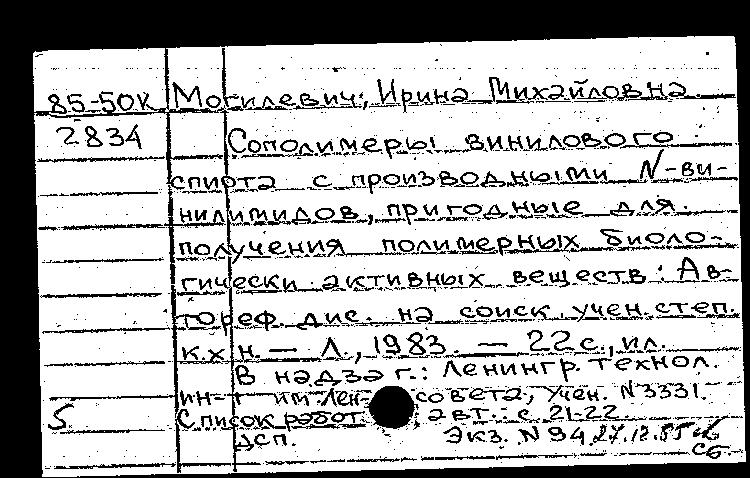 85-50К Могилевич, Ирина Михайловна.
2834 Сополимеры винилового
спирта с производными N-ви-
нилимидов, пригодные для
получения полимерных биоло-
гически активных веществ: Ав-
тореф. дис. на соиск. учен. степ.
к.х.н. — Л., 1983. — 22 с., ил.
В надзаг.: Ленингр. технол.
ин-т им. Ленсовета, Учен. N3331.
5. Список работ авт.: с. 21-22.
ДСП. Экз. N 94 27.12.85
Сб.